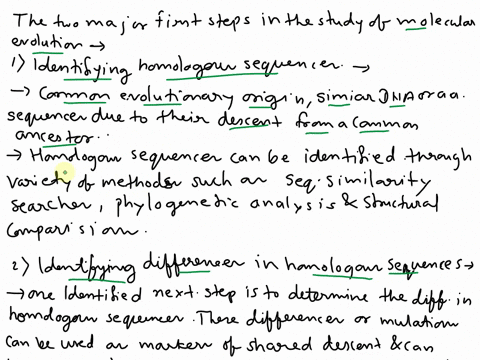 The two major first steps in the study of molecular
evolution →
1) Identifying homologous sequences. →
→ Common evolutionary origin, simiar DNA or a.a.
sequences due to their descent from a common
ancestor..
→ Homologous sequences can be identified through
variety of methods such as seq. similarity
searches, phylogenetic analysis & structural
comparision.
2) Identifying differences in homologous sequences →
→ one Identified next step is to determine the diff. in
homologous sequences. These differences or mutation
can be used as markers of shared descent & can